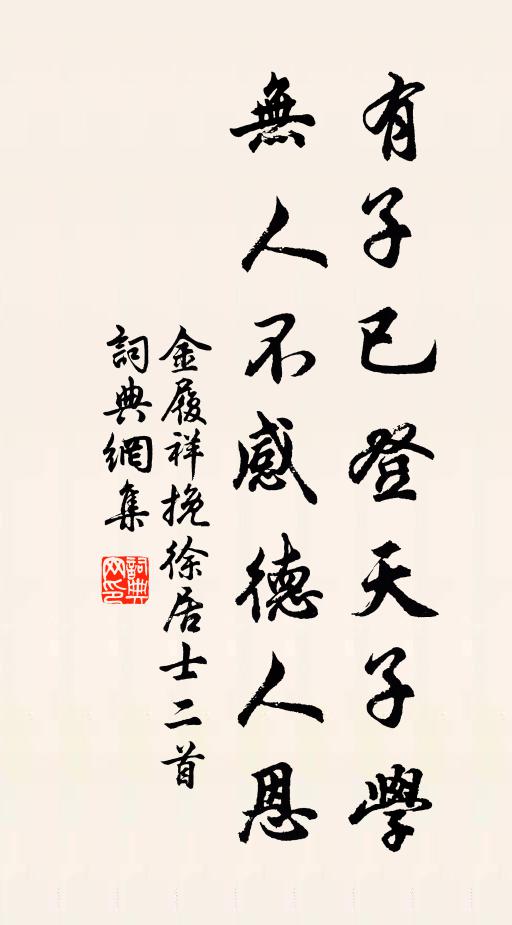 有子已登天子學
無人不感德人恩
金履祥挽徐居士二首
詞典網集
詞典网印